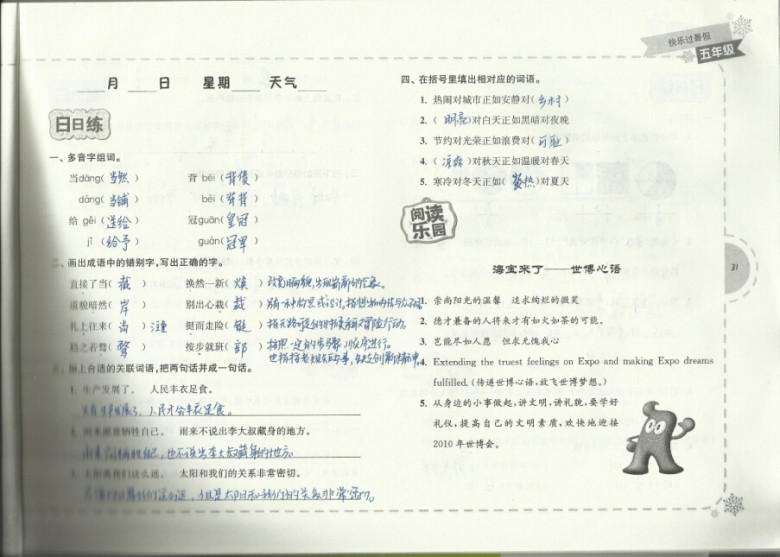 快乐过暑假
五年级
月 日 星期 天气
日日练
一、多音字组词。
当dāng(当然) 背 bēi(背债)
dàng(当铺) bèi(背
给 gěi(送给) 冠guān(皇冠)
jǐ(给予) guàn(冠军)
二、画出成语中的错别字,写出正确的字。
直接了当( 截 ) 换然一新( 焕 )
道貌暗然( 岸 ) 别出心栽( 裁 )
礼上往来( 尚 ) 挺而走险( 铤 )
趋之若骛( 鹜 ) 按步就班( 部 )
三、加上合适的关联词语,把两句话并成一句话。
1. 生产发展了。 人民丰衣足食。
只有生产发展了,人民才会丰衣足食。
2. 雨来愿意牺牲自己。 雨来不说出李大叔藏身的地方。
也不说出李大叔藏身的地方。
3. 太阳离我们这么远。 太阳和我们的关系非常密切。
但是太阳和我们的关系非常密切。
四、在括号里填出相对应的词语。
1. 热闹对城市正如安静对(乡村)
2. ( 明亮 )对白天正如黑暗对夜晚
3. 节约对光荣正如浪费对( 可耻 )
4. ( 凉爽 )对秋天正如温暖对春天
5. 寒冷对冬天正如( 炎热 )对夏天
阅读乐园
海宝来了——世博心语
1. 崇尚阳光的温馨 追求绚烂的微笑
2. 德才兼备的人将来才有如火如荼的可能。
3. 岂能尽如人愿 但求无愧我心
4. Extending the truest feelings on Expo and making Expo dreams
fulfilled. (传递世博心语,放飞世博梦想。)
5. 从身边的小事做起,讲文明,讲礼貌,要学好
礼仪,提高自己的文明素质,欢快地迎接
2010 年世博会。
31